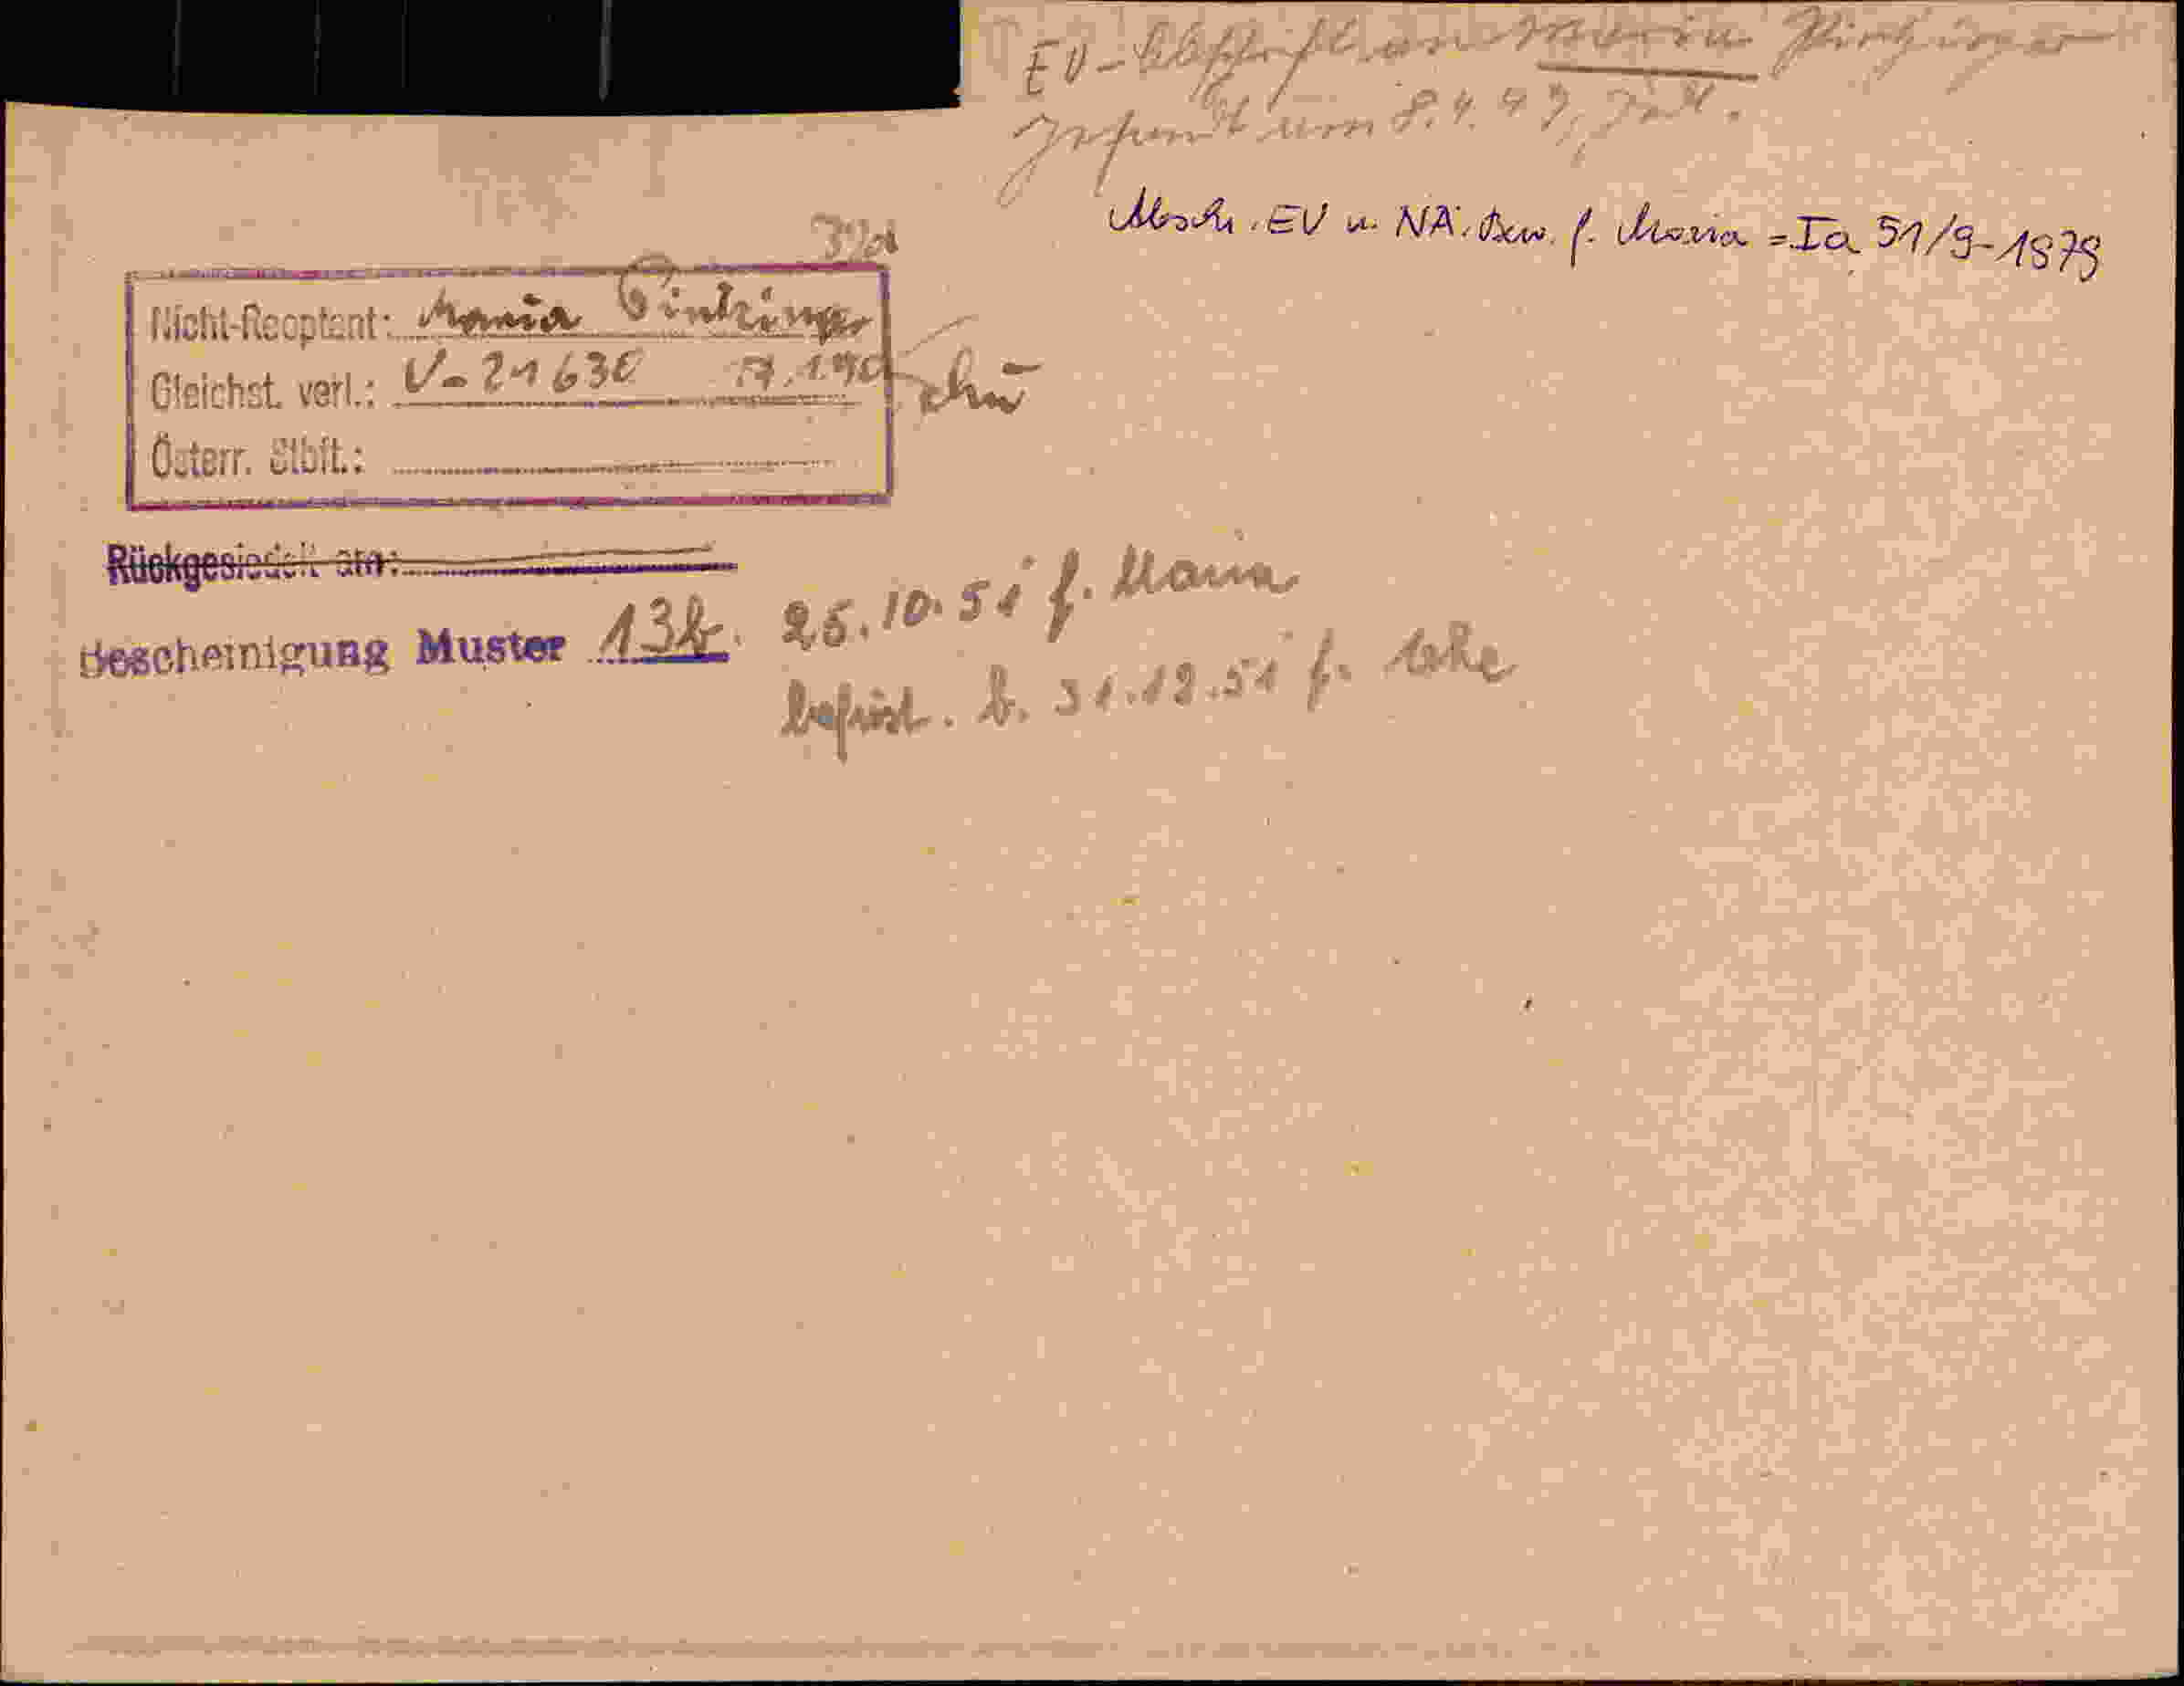 EV-Abschrift an Maria
gesandt am 8.4.49,
Absch. EV u. NA. Bew. f. Maria = Ia 51/9-1979
39d
Nicht-Reoptant: Maria Pintzinger
Gleichst. verl.: V-21630
Österr. Stbft.:
Rückgesiedelt am:
Bescheinigung Muster 13b. 25.10.51 f. Maria
befrist. b. 31.12.51 f.